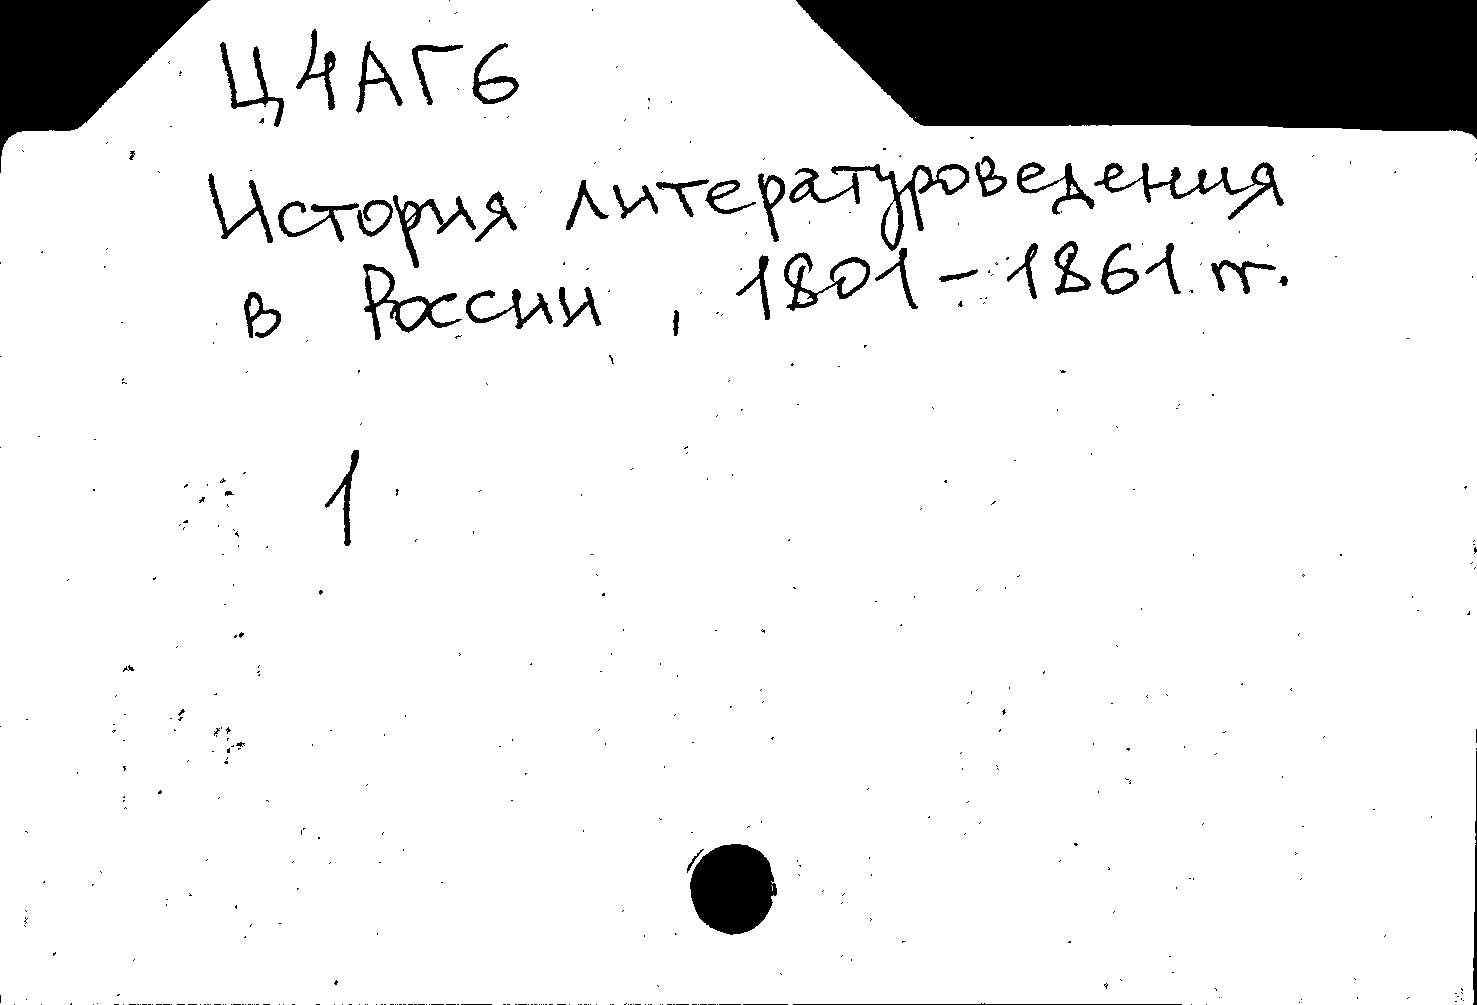 Ц4АГ6
История литературоведения
в России, 1801-1861 гг.
1